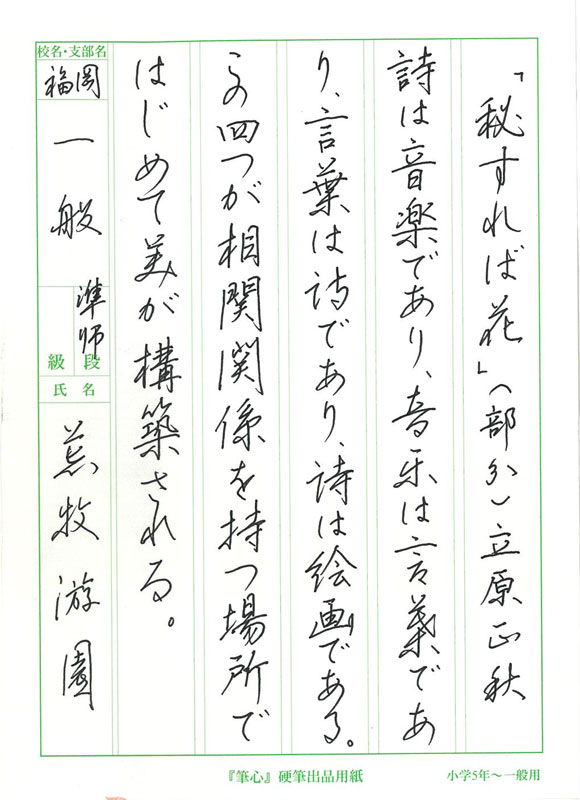 「秘すれば花」（部分）立原正秋
詩は音楽であり、音楽は言葉であ
り、言葉は詩であり、詩は絵画である。
この四つが相関関係を持つ場所で
はじめて美が構築される。
校名・支部名
福岡
一般
準師
級 段
氏名
荒牧游園
『筆心』硬筆出品用紙
小学5年〜一般用